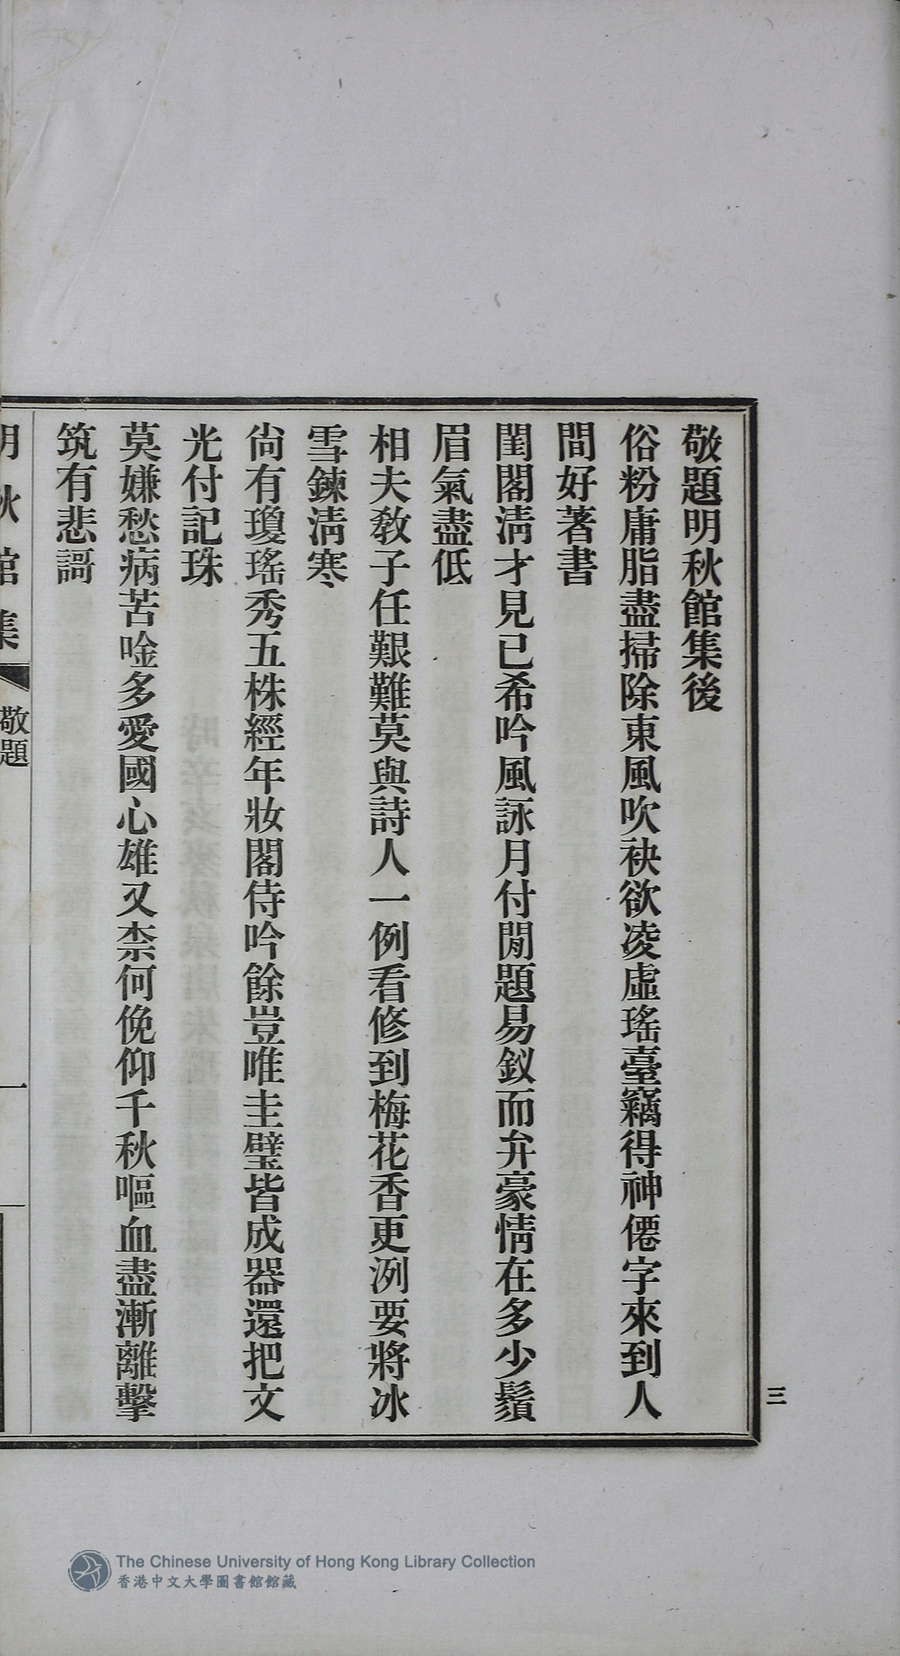 敬題明秋館集後
俗粉庸脂盡掃除東風吹袂欲凌虛瑤臺竊得神僊字來到人
間好著書
閨閣淸才見已希吟風詠月付閒題易釵而弁豪情在多少鬚
眉氣盡低
相夫敎子任艱難莫與詩人一例看修到梅花香更洌要將冰
雪鍊淸寒
尙有瓊瑤秀五株經年妝閣侍吟餘豈唯圭璧皆成器還把文
光付記珠
莫嫌愁病苦唫多愛國心雄又柰何俛仰千秋嘔血盡漸離擊
筑有悲謌
明秋館集
敬題
一
三
The Chinese University of Hong Kong Library Collection
香港中文大學圖書館館藏